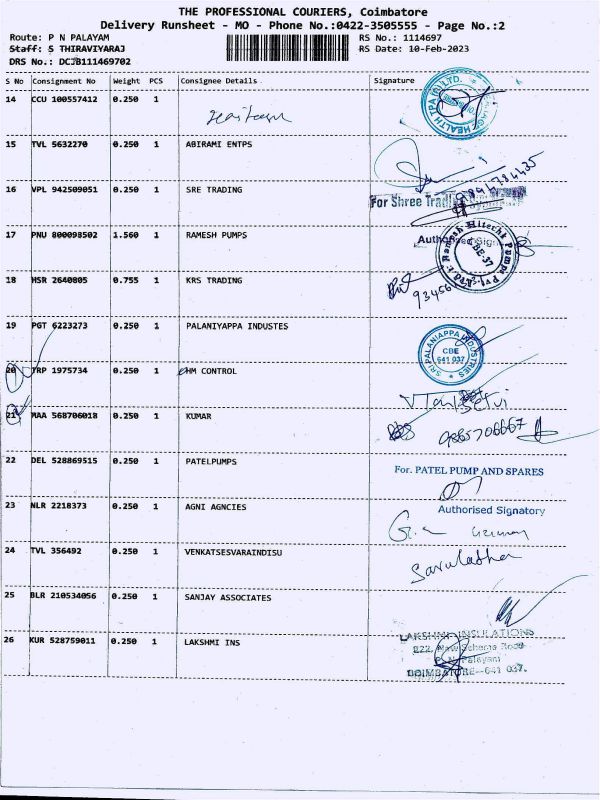 THE PROFESSIONAL COURIERS, Coimbatore
Delivery Runsheet - MO - Phone No.:0422-3505555 - Page No.:2
Route: P N PALAYAM
Staff: S THIRAVIYARAJ
DRS No.: DCJB111469702
RS No.: 1114697
RS Date: 10-Feb-2023
S No Consignment No Weight PCS Consignee Details Signature
14 CCU 100557412 0.250 1
15 TVL 5632270 0.250 1 ABIRAMI ENTPS
16 VPL 942509051 0.250 1 SRE TRADING
For Shree
17 PNU 800098502 1.560 1 RAMESH PUMPS
Ramesh Hitechk Pumps Pvt. Ltd.
18 HSR 2640805 0.755 1 KRS TRADING
19 PGT 6223273 0.250 1 PALANIYAPPA INDUSTES
SRI PALANIAPPA INDUSTRIES
CBE
641 037
20 TRP 1975734 0.250 1 HM CONTROL
21 MAA 568706018 0.250 1 KUMAR
9865706667
22 DEL 528869515 0.250 1 PATELPUMPS
For. PATEL PUMP AND SPARES
Authorised Signatory
23 NLR 2218373 0.250 1 AGNI AGNCIES
24 TVL 356492 0.250 1 VENKATSESVARAINDISU
Sarulatha
25 BLR 210534056 0.250 1 SANJAY ASSOCIATES
26 KUR 528759011 0.250 1 LAKSHMI INS
LAKSHMI INSULATIONS
222, New Scheme Road
Palayam
COIMBATORE - 641 037.